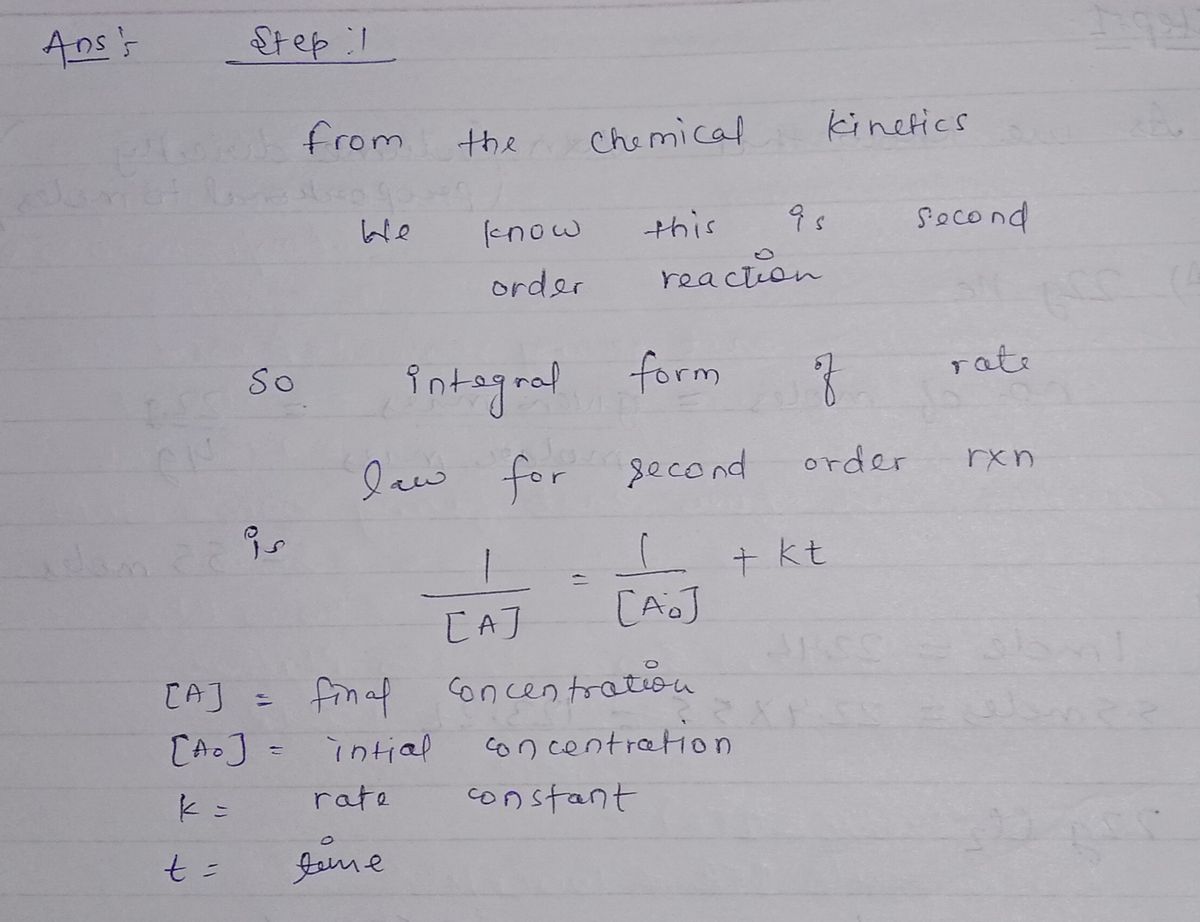 Ans:- Step:1
from the chemical kinetics
We know this is second
order reaction
so integral form of rate
law for second order rxn
is
1/[A] = 1/[A0] + kt
[A] = final concentration
[A0] = intial concentration
k = rate constant
t = time